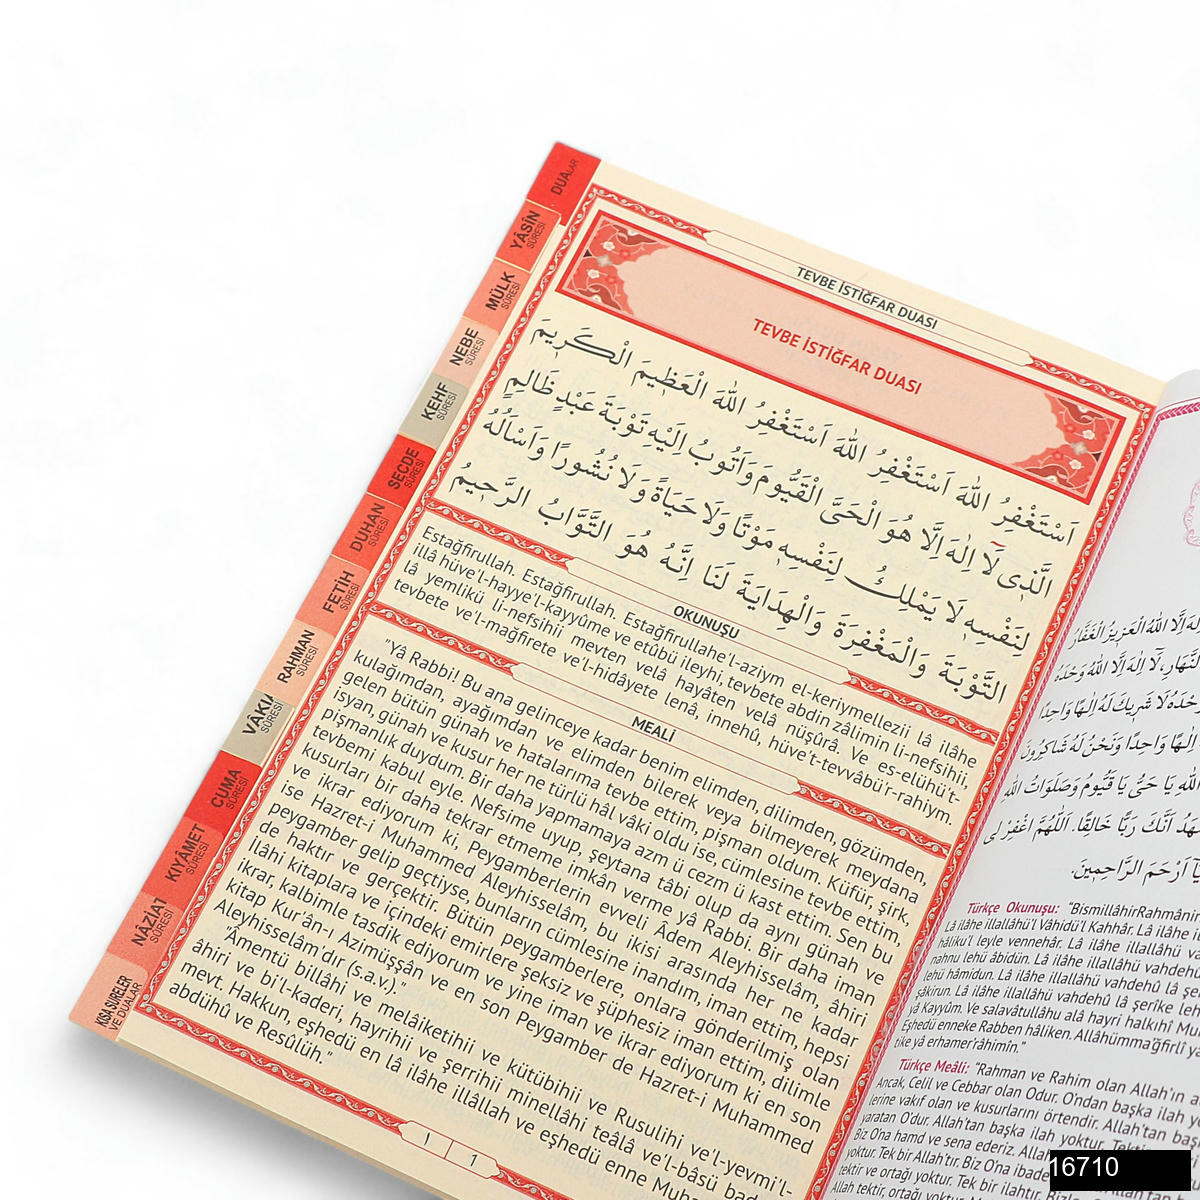 DUALAR
YÂSÎN SÛRESİ
MÜLK SÛRESİ
NEBE SÛRESİ
KEHF SÛRESİ
SECDE SÛRESİ
DUHAN SÛRESİ
FETİH SÛRESİ
RAHMAN SÛRESİ
VÂKIA SÛRESİ
CUMA SÛRESİ
KIYÂMET SÛRESİ
NÂZİAT SÛRESİ
KISA SURELER VE DUALAR
TEVBE İSTİĞFAR DUASI
TEVBE İSTİĞFAR DUASI
اَسْتَغْفِرُ اللّٰهَ اَسْتَغْفِرُ اللّٰهَ اَسْتَغْفِرُ اللّٰهَ الْعَظٖيمَ الْكَرٖيمَ
الَّذٖى لَٓا اِلٰهَ اِلَّا هُوَ الْحَىَّ الْقَيُّومَ وَاَتُوبُ اِلَيْهِ تَوْبَةَ عَبْدٍ ظَالِمٍ
لِنَفْسِهٖ لَا يَمْلِكُ لِنَفْسِهٖ مَوْتًا وَلَا حَيَاةً وَلَا نُشُورًا وَاَسْاَلُهُ
التَّوْبَةَ وَالْمَغْفِرَةَ وَالْهِدَايَةَ لَنَا اِنَّهُ هُوَ التَّوَّابُ الرَّحٖيمُ
OKUNUŞU
Estağfirullah. Estağfirullah. Estağfirullahe'l-aziym el-keriymellezii lâ ilâhe
illâ hüve'l-hayye'l-kayyûme ve etûbü ileyhi, tevbete abdin zâlimin li-nefsihii
lâ yemlikü li-nefsihii mevten velâ hayâten velâ nüşûrâ. Ve es-elühü't-
tevbete ve'l-mağfirete ve'l-hidâyete lenâ, innehû, hüve't-tevvâbü'r-rahiym.
MEALİ
"Yâ Rabbi! Bu ana gelinceye kadar benim elimden, dilimden, gözümden,
kulağımdan, ayağımdan ve elimden bilerek veya bilmeyerek meydana
gelen bütün günah ve hatalarıma tevbe ettim, pişman oldum. Küfür, şirk,
isyan, günah ve kusur her ne türlü hâl vâki oldu ise, cümlesine tevbe ettim,
pişmanlık duydum. Bir daha yapmamaya azm ü cezm ü kast ettim. Sen bu
tevbemi kabul eyle. Nefsime uyup, şeytana tâbi olup da aynı günah ve
kusurları bir daha tekrar etmeme imkân verme yâ Rabbi. Bir daha iman
ve ikrar ediyorum ki, Peygamberlerin evveli Âdem Aleyhisselâm, âhiri
ise Hazret-i Muhammed Aleyhisselân, bu ikisi arasında her ne kadar
peygamber gelip geçtiyse, bunların cümlesine inandım, iman ettim, hepsi
de haktır ve gerçektir. Bütün peygamberlere, onlara gönderilmiş olan
İlâhi kitaplara ve içindeki emirlere şeksiz ve şüphesiz iman ettim, dilimle
ikrar, kalbimle tasdik ediyorum ve yine iman ve ikrar ediyorum ki en son
kitap Kur'ân-ı Azimüşşân ve en son Peygamber de Hazret-i Muhammed
Aleyhisselâm'dır (s.a.v.)."
"Âmentü billâhi ve melâiketihii ve kütübihii ve Rusulihi ve'l-yevmi'l-
âhiri ve bi'l-kaderi, hayrihii ve şerrihii minellêhi teâlâ ve'l-bâsü bade'l-
mevt. Hakkun, eşhedü en lâ ilâhe illâllah ve eşhedü enne Muha
abdühû ve Resûlüh."
١
1
Türkçe Okunuşu: "BismillâhirRahmânir
Lâ ilâhe illallâhü'l Vâhidü'l Kahhâr. Lâ ilâhe i
hâliku'l leyle vennehâr. Lâ ilâhe illallâhü va
nahnu lehü âbidün. Lâ ilâhe illallâhü vahdehu
lehü hâmidun. Lâ ilâhe illallâhü vahdehû lâ şe
şâkirun. Lâ ilâhe illallâhü vahdehû lâ şerîke leh
yâ Kayyûm. Ve salavâtullâhu alâ hayri halkıhî Mu
Eşhedü enneke Rabben hâliken. Allâhümmağfirlî y
tike yâ erhamer'râhimîn."
Türkçe Meâli: "Rahman ve Rahim olan Allah'ın a
Ancak, Celil ve Cebbar olan Odur. O'ndan başka ilah y
lerine vakıf olan ve kusurlarını örtendir. Allah'tan baş
yaratan O'dur. Allah'tan başka ilah yoktur. Tektir
Biz O'na hamd ve sena ederiz. Allah
yoktur. Tek bir Allah'tır. Biz O'na ibade
tektir ve ortağı yoktur. Tek bir ilahtır. Bizle
Allah tektir, ortağı yoktur.
16710